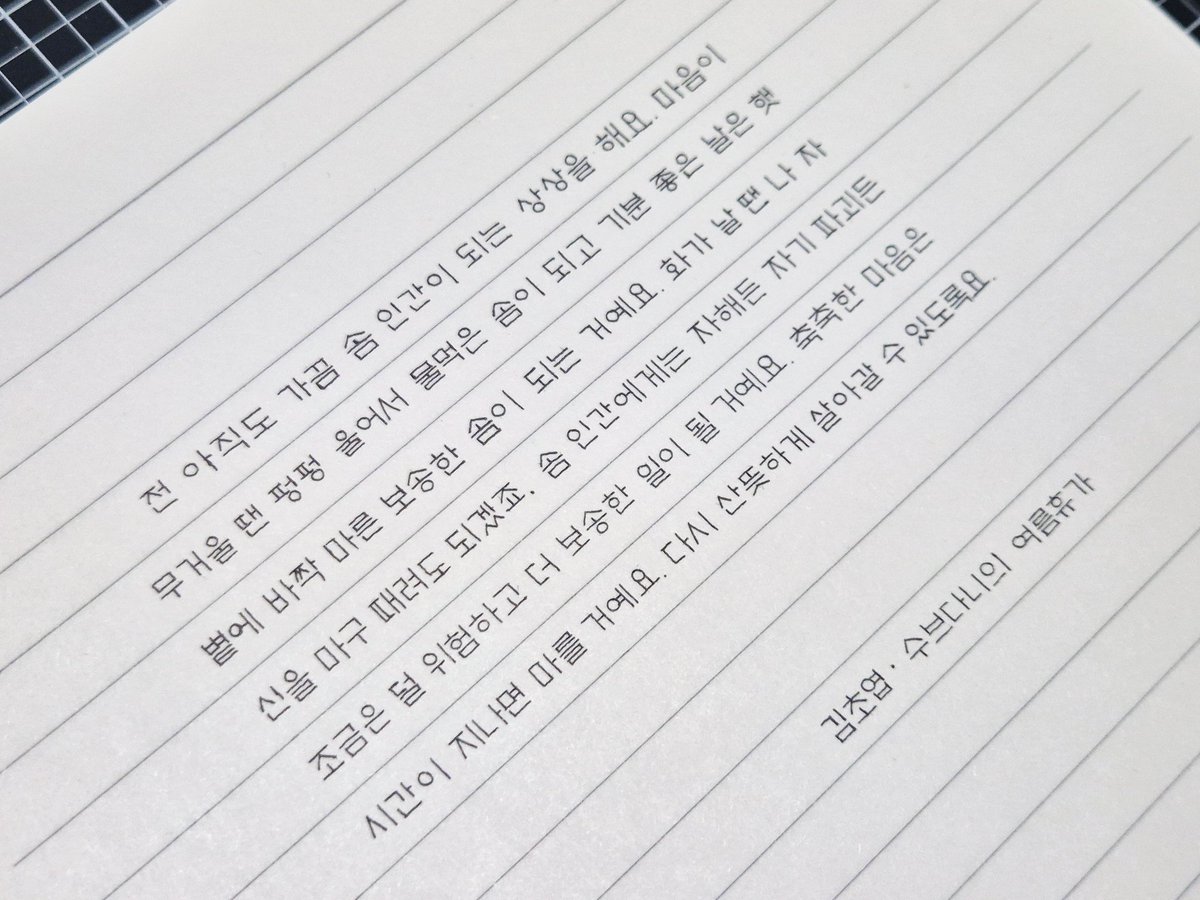 전 아직도 가끔 솜 인간이 되는 상상을 해요. 마음이
무거울 땐 펑펑 울어서 물먹은 솜이 되고 기분 좋은 날은 햇
볕에 바짝 마른 보송한 솜이 되는 거예요. 화가 날 땐 나 자
신을 마구 때려도 되겠죠. 솜 인간에게는 자해든 자기 파괴든
조금은 덜 위험하고 더 보송한 일이 될 거예요. 축축한 마음은
시간이 지나면 마를 거예요. 다시 산뜻하게 살아갈 수 있도록요.
김초엽 · 수브다니의 여름휴가